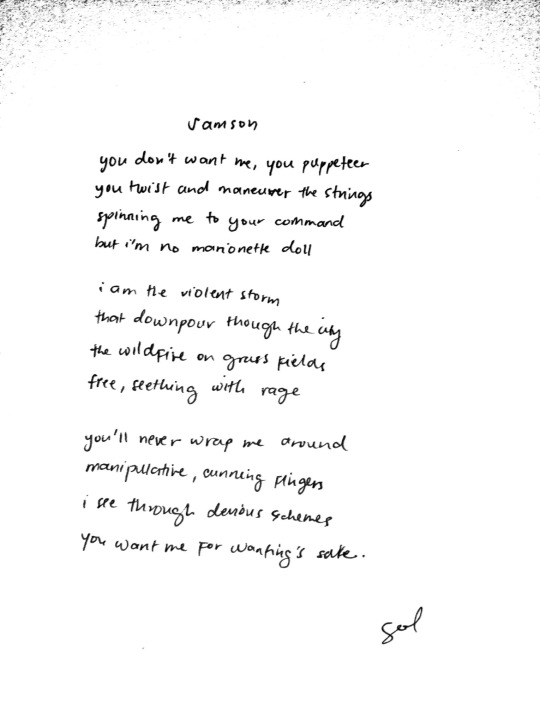 samson
you don't want me, you puppeteer
you twist and maneuver the strings
spinning me to your command
but i'm no marionette doll
i am the violent storm
that downpour though the city
the wildfire on grass fields
free, seething with rage
you'll never wrap me around
manipulative, cunning fingers
i see through devious schemes
you want me for wanting's sake.